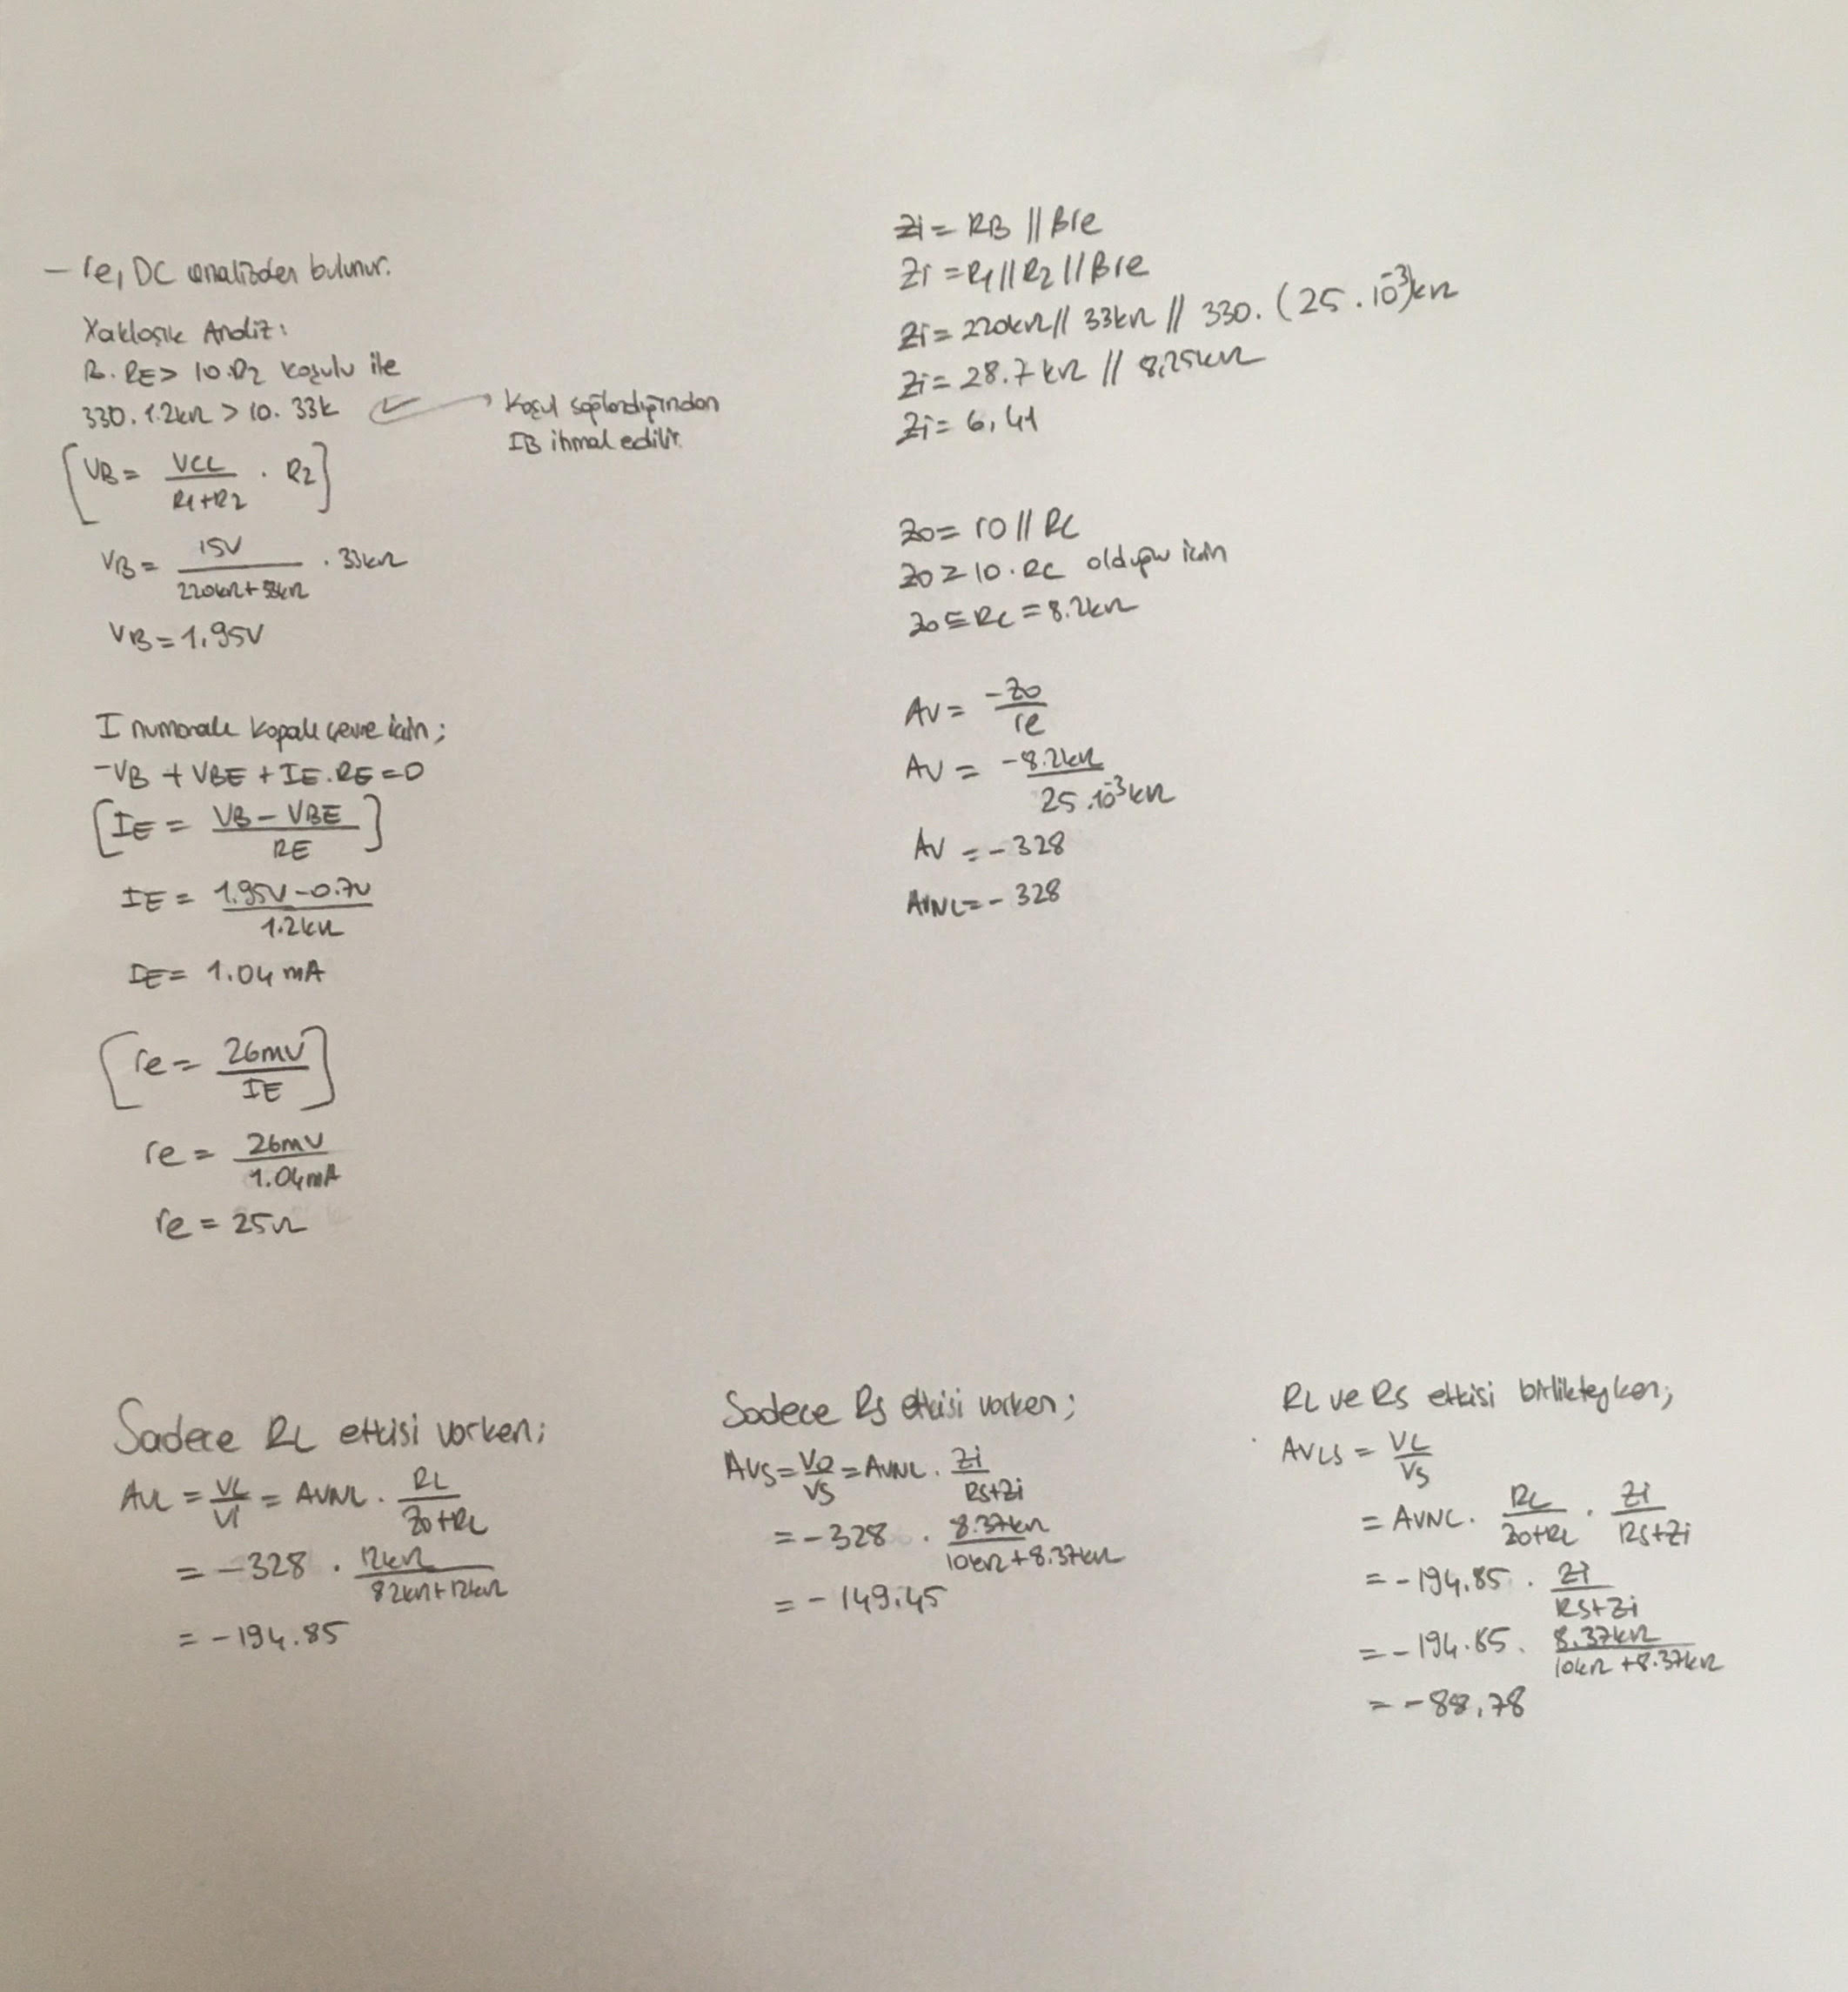 – re, DC analizden bulunur.
Yaklaşık Analiz:
β.RE > 10.R2 koşulu ile
330.1.2kΩ > 10.33k ✓ → Koşul sağlandığından
IB ihmal edilir.
[VB = VCC / R1+R2 . R2]
VB = 15V / 220kΩ+33kΩ . 33kΩ
VB = 1.95V
I numaralı kapalı çevre için;
-VB + VBE + IE.RE = 0
[IE = VB - VBE / RE]
IE = 1.95V - 0.7V / 1.2kΩ
IE = 1.04 mA
[re = 26mV / IE]
re = 26mV / 1.04mA
re = 25Ω
Zi = RB // βre
Zi = R1 // R2 // βre
Zi = 220kΩ // 33kΩ // 330.(25.10⁻³)kΩ
Zi = 28.7kΩ // 8,25kΩ
Zi = 6,41
Zo = ro // RC
Zo ≥ 10.RC olduğu için
Zo ≅ RC = 8.2kΩ
AV = -Zo / re
AV = -8.2kΩ / 25.10⁻³kΩ
AV = -328
AVNL = -328
Sadece RL etkisi varken;
AVL = VL / Vi = AVNL . RL / Zo+RL
= -328 . 12kΩ / 82kΩ+12kΩ
= -194.85
Sadece Rs etkisi varken;
AVS = Vo / VS = AVNL . Zi / RS+Zi
= -328 . 8.37kΩ / 10kΩ+8.37kΩ
= -149.45
RL ve RS etkisi birlikteyken;
AVLS = VL / VS
= AVNL . RL / Zo+RL . Zi / RS+Zi
= -194.85 . Zi / RS+Zi
= -194.85 . 8.37kΩ / 10kΩ+8.37kΩ
= -88,78